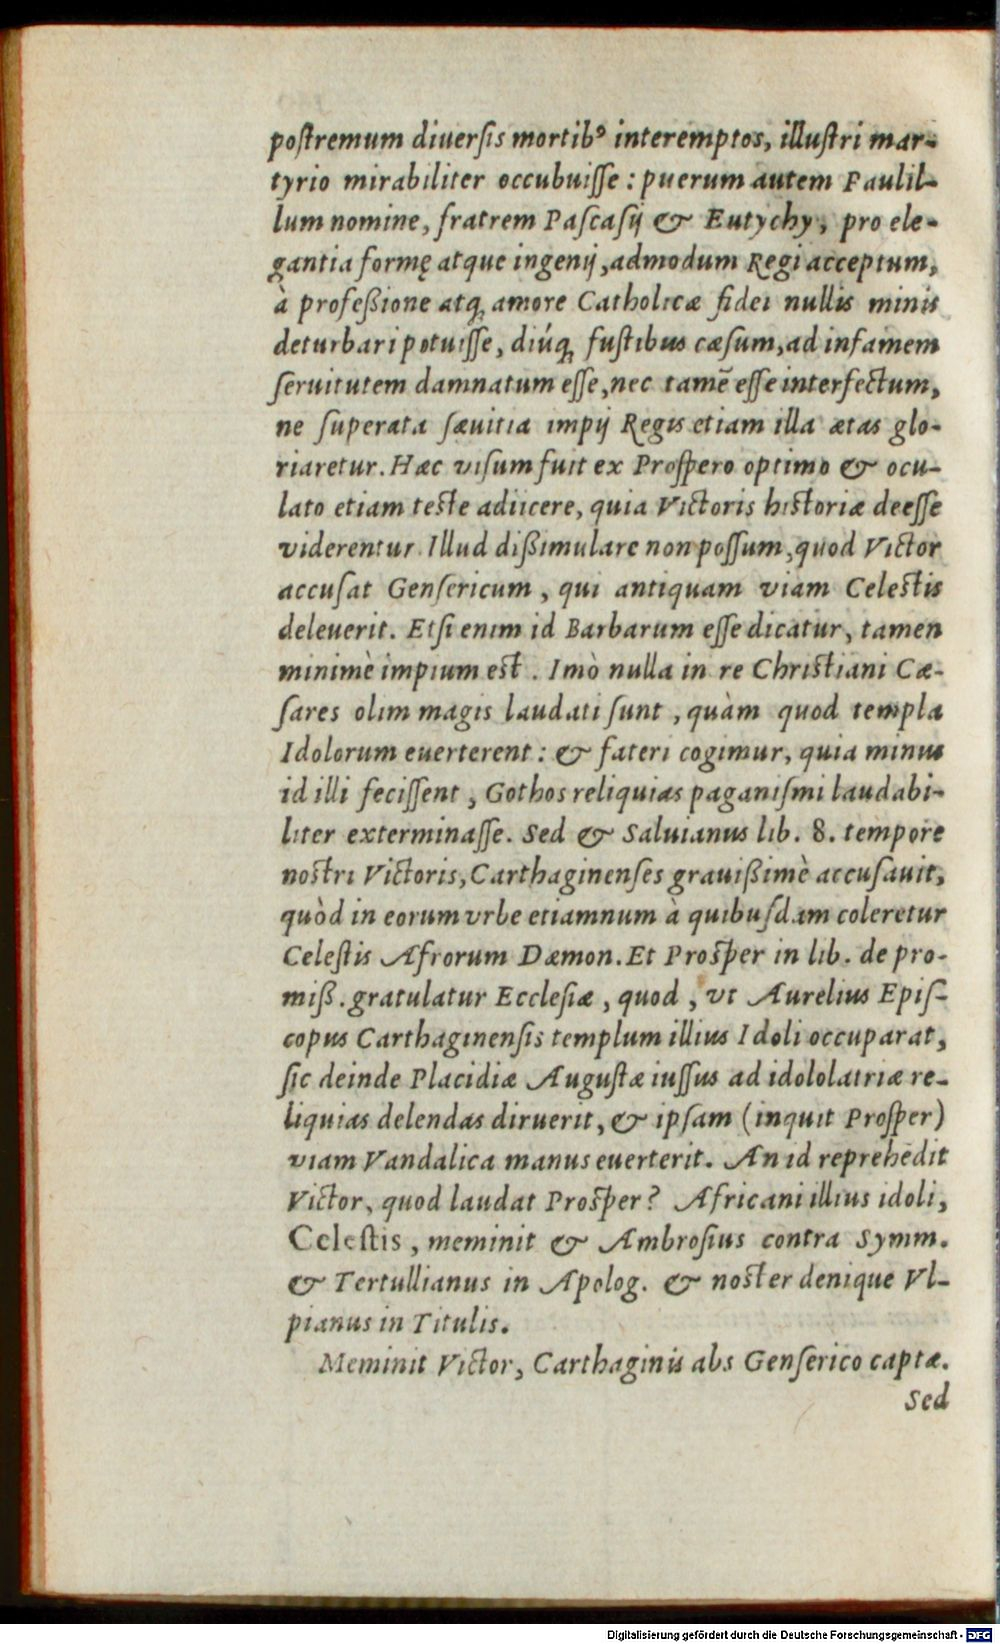 poſtremum diuerſis mortibꝰ interemptos, illuſtri mar-
tyrio mirabiliter occubuiſſe : puerum autem Paulil-
lum nomine, fratrem Paſcaſij & Eutychy, pro ele-
gantia formę atque ingenij, admodum Regi acceptum,
à profeßione atq; amore Catholicæ fidei nullis minis
deturbari potuiſſe, diúq; fuſtibus cæſum, ad infamem
ſeruitutem damnatum eſſe, nec tamē eſſe interfectum,
ne ſuperata ſæuitia impij Regis etiam illa ætas glo-
riaretur. Hæc viſum fuit ex Proſpero optimo & ocu-
lato etiam teſte adiicere, quia Victoris hiſtoriæ deeſſe
viderentur. Illud dißimulare non poſſum, quod Victor
accuſat Genſericum, qui antiquam viam Celeſtis
deleuerit. Etſi enim id Barbarum eſſe dicatur, tamen
minimè impium eſt. Imò nulla in re Chriſtiani Cæ-
ſares olim magis laudati ſunt, quàm quod templa
Idolorum euerterent : & fateri cogimur, quia minus
id illi feciſſent, Gothos reliquias paganiſmi laudabi-
liter exterminaſſe. Sed & Saluianus lib. 8. tempore
noſtri Victoris, Carthaginenſes grauißimè accuſauit,
quòd in eorum vrbe etiamnum à quibuſdam coleretur
Celeſtis Afrorum Dæmon. Et Proſper in lib. de pro-
miß. gratulatur Eccleſiæ, quod, vt Aurelius Epiſ-
copus Carthaginenſis templum illius Idoli occuparat,
ſic deinde Placidiæ Auguſtæ iuſſus ad idololatriæ re-
liquias delendas diruerit, & ipſam (inquit Proſper)
viam Vandalica manus euerterit. An id reprehēdit
Victor, quod laudat Proſper? Africani illius idoli,
Celeſtis, meminit & Ambroſius contra Symm.
& Tertullianus in Apolog. & noſter denique Vl-
pianus in Titulis.
Meminit Victor, Carthaginis abs Genſerico captæ.
Sed
Digitalisierung gefördert durch die Deutsche Forschungsgemeinschaft - DFG